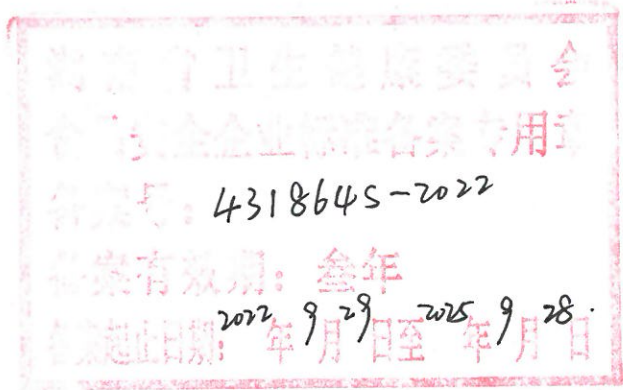 湖南省卫生健康委员会
食品安全企业标准备案专用章
备案号：431864S-2022
备案有效期：叁年
备案起止日期：2022年9月29日至2025年9月28日